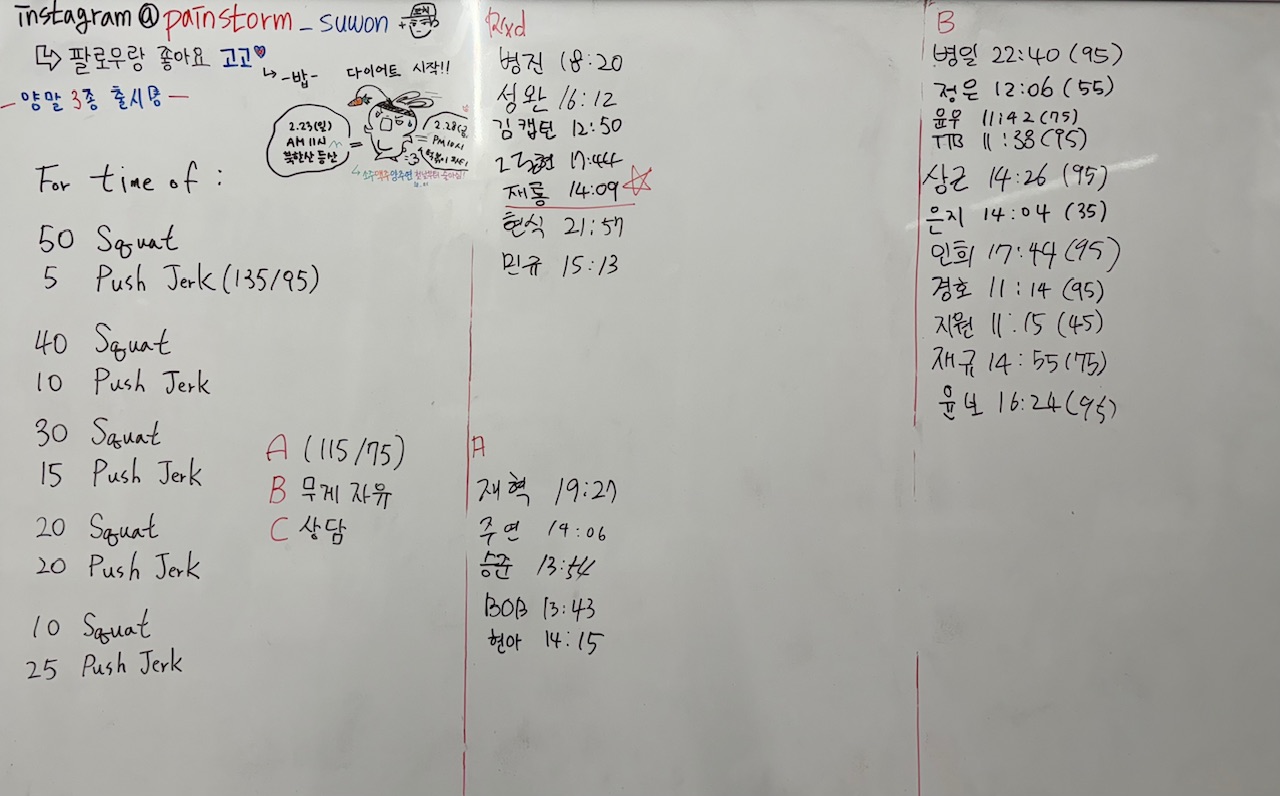 instagram@painstorm_suwon
팔로우랑 좋아요 고고
-양말 3종 출시중-
-밥-
다이어트 시작!!
2.23(일)
AM 11시
북한산 등산
2.28(금
PM 10시
For time of :
50 Squat
5 Push Jerk (135/95)
40 Squat
10 Push Jerk
30 Squat
15 Push Jerk
20 Squat
20 Push Jerk
10 Squat
25 Push Jerk
A (115/75)
B 무게 자유
C 상담
Rxd
병진 18:20
성완 16:12
김캡틴 12:50
17:44
재룡 14:09
현식 21:57
민규 15:13
A
재혁 19:27
주연 14:06
승준 13:54
BOB 13:43
현아 14:15
B
병일 22:40 (95)
정은 12:06 (55)
윤우 11:42 (75)
TTB 11:38 (95)
상근 14:26 (95)
은지 14:04 (35)
인희 17:44 (95)
경호 11:14 (95)
지원 11:15 (45)
재규 14:55 (75)
윤보 16:24 (95)